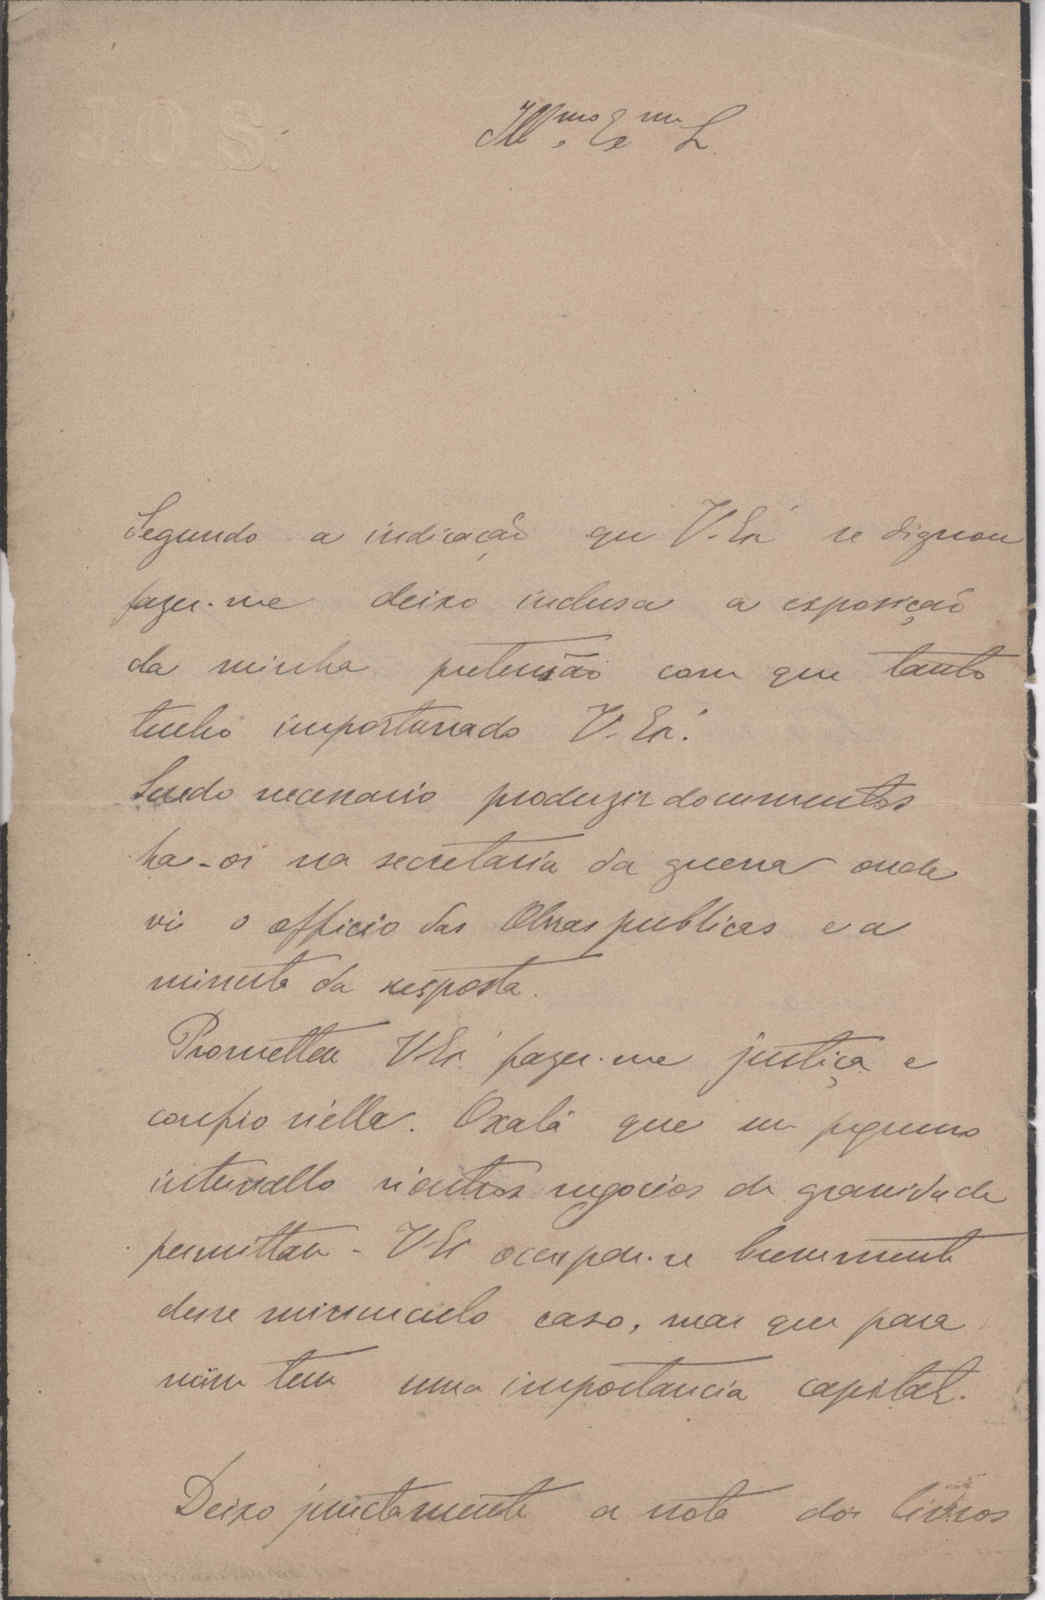 Ill.mo Ex.mo S.
Segundo a indicação que V. Exª se dignou
fazer-me deixo inclusa a exposição
da minha pretensão com que tanto
tenho importunado V. Exª.
Sendo necessario produzir documentos
ha-os na secretaria da guerra onde
vi o officio das Obras publicas e a
minuta da resposta.
Prometteu V Exª fazer-me justiça e
confio n'ella. Oxalá que um pequeno
intervallo n'outros negocios de gravidade
permittam - V Exª occupar-se brevemente
desse minusculo caso, mas que para
mim tem uma importancia capital.
Deixo junctamente a nota dos livros